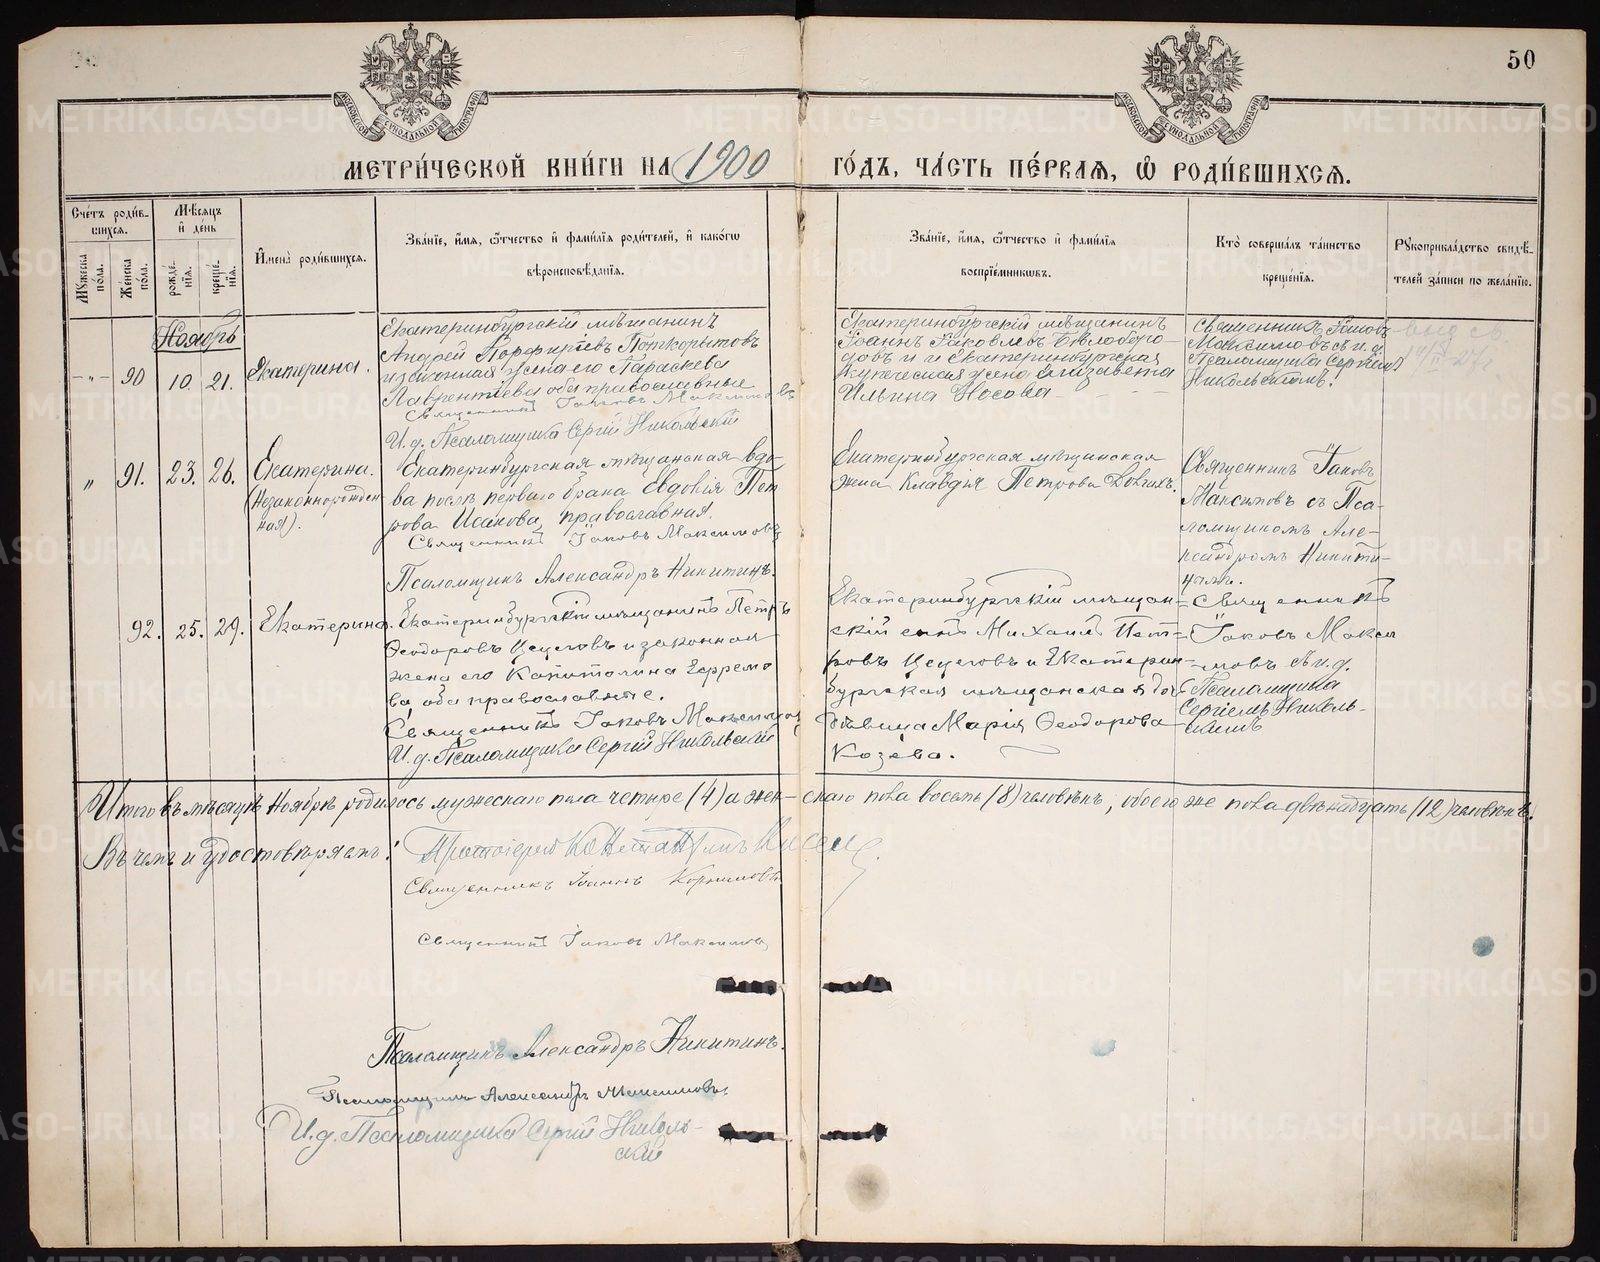 50
МОСКОВСКОЙ СѴНОДАЛЬНОЙ ТИПОГРАФІИ
МОСКОВСКОЙ СѴНОДАЛЬНОЙ ТИПОГРАФІИ
МЕТРИ́ЧЕСКОЙ КНИ́ГИ НА 1900 ГО́ДЪ, ЧА́СТЬ ПЕ́РВАѦ, Ѡ РОДИ́ВШИХСѦ.
Сче́тъ роди́в-
шихсѧ.
Мꙋжеска по́ла.
Же́нска по́ла.
Мѣ́сѧцъ
и҆ де́нь
рожде́-
нїѧ.
креще́-
нїѧ.
И҆мена̀ роди́вшихсѧ.
Зва́нїе, и҆́мѧ, ѻ҆́тчество и҆ фамі́лїѧ роди́телей, и҆ како́гѡ
вѣроисповѣ́данїѧ.
Зва́нїе, и҆́мѧ, ѻ҆́тчество и҆ фамі́лїѧ
воспрїе́мникѡвъ.
Кто̀ соверша́лъ та́инство
креще́нїѧ.
Рꙋкоприкла́дство свидѣ́-
телей за́писи по жела́нїю.
Ноябрь
-"- 90 10. 21. Екатерина.
Екатеринбургскій мѣщанинъ
Андрей Порфирьевъ Поткорытовъ
и законная жена его Параскева
Лаврентіева оба православные
Священникъ Іаковъ Максимовъ
И. д. Псаломщика Сергій Никольскій
Екатеринбургскій мѣщанинъ
Іоаннъ Іаковлевъ Бѣлобородовъ
и Екатеринбургская
купеческая жена Елизавета
Ильина Носова
Священникъ Іаковъ
Максимовъ съ и. д.
Псаломщика Сергіемъ
Никольскимъ.
" 91. 23. 26. Екатерина.
(Незаконнорожден-
ная).
Екатеринбургская мѣщанская вдо-
ва послѣ перваго брака Евдокія Пет
рова Исакова, православная.
Священникъ Іаковъ Максимовъ
Псаломщикъ Александръ Никитинъ.
Екатеринбургская мѣщанская
жена Клавдія Петрова
Священникъ Іаковъ
Максимовъ съ Пса-
ломщикомъ Але-
ксандромъ Никити-
нымъ.
92. 25. 29. Екатерина.
Екатеринбургскій мѣщанинъ Петръ
Ѳеодоровъ и законная
жена его Капитолина Ефремо
ва, оба православные.
Священникъ Іаковъ Максимовъ
И. д. Псаломщика Сергій Никольскій
Екатеринбургскій мѣщан-
скій сынъ Михаилъ Пет-
ровъ и Екатерин-
бургская мѣщанская
дѣвица Марія Ѳеодорова
Козева.
Священникъ
Іаковъ Макси
мовъ съ и. д.
Псаломщика
Сергіемъ Николь-
скимъ
Итого въ мѣсяцѣ Ноябрѣ родилось мужескаго пола четыре (4) а жен-скаго пола восемь (8) человѣкъ, обоего же пола двѣнадцать (12) человѣкъ.
Въ чемъ и удостовѣряемъ:
Протоіерей Константинъ
Священникъ Іоаннъ
Священникъ Іаковъ Максимовъ
Псаломщикъ Александръ Никитинъ.
Псаломщикъ Александръ Максимовъ.
И. д. Псаломщика Сергій Николь-
скій
METRIKI.GASO-URAL.RU